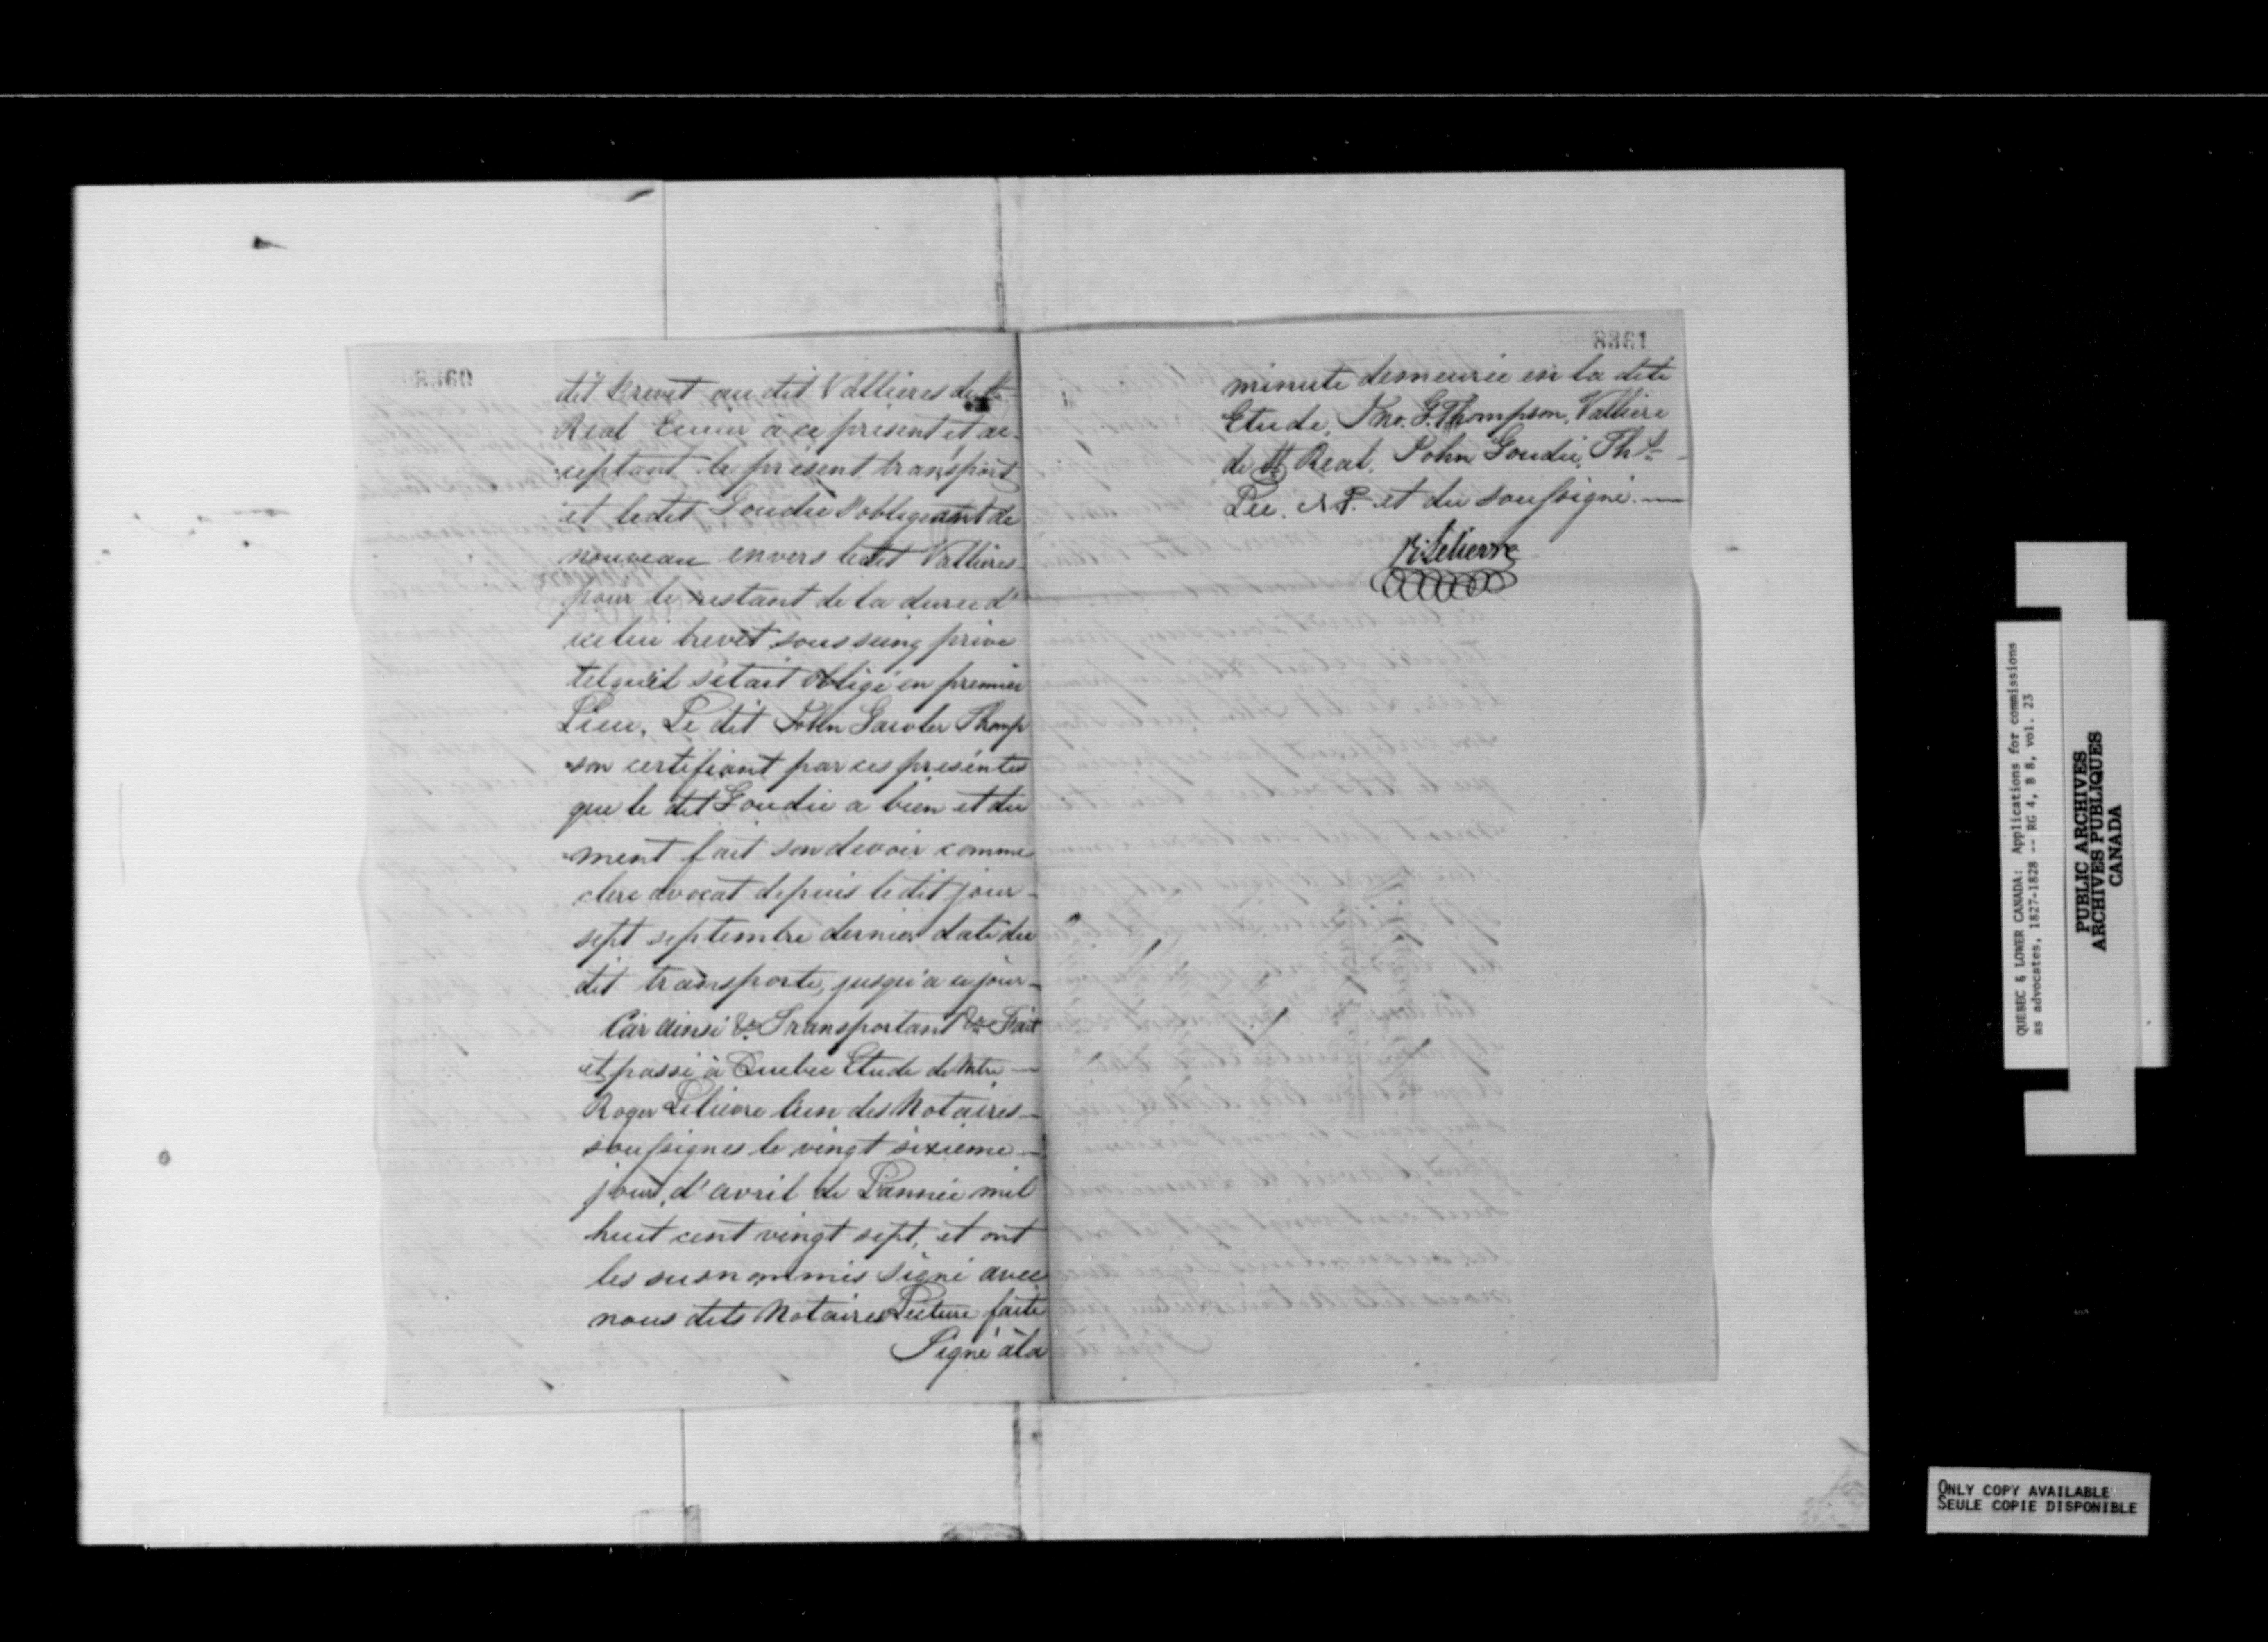 8360
dit Brevet au dit Vallieres de St
Real Ecuier à ce présent et ac-
ceptant le présent transport
et ledit Goudie s'obligeant de
nouveau envers ledit Vallieres
pour le restant de la durée d'
icelui brevet sous seing privé
tel qu'il s'était obligé en premier
Lieu, Le dit John Gawler Thomp
son certifiant par ces présentes
que le dit Goudie a bien et du
ment fait son devoir comme
clerc avocat depuis le dit jour -
sept septembre dernier date du
dit transporte, jusqu'à ce jour -
Car ainsi &c Transportant &c Fait
et passé à Quebec Etude de Mtre -
Roger Lelievre l'un des Notaires -
soussignes le vingt sixieme -
jour, d'avril de L'année mil
huit cent vingt sept, et ont
les susnommés signé avec
nous dits Notaires Lecture faite
Signé à la
8361
minute demeurée en la dite
Etude, Jno. G. Thompson, Valliere
de St Real, John Goudie, Ths
Lee, N.P. et du soussigné. —
R. Lelievre
QUEBEC & LOWER CANADA: Applications for commissions
as advocates, 1827-1828 -- RG 4, B 8, vol. 23
PUBLIC ARCHIVES
ARCHIVES PUBLIQUES
CANADA
ONLY COPY AVAILABLE
SEULE COPIE DISPONIBLE